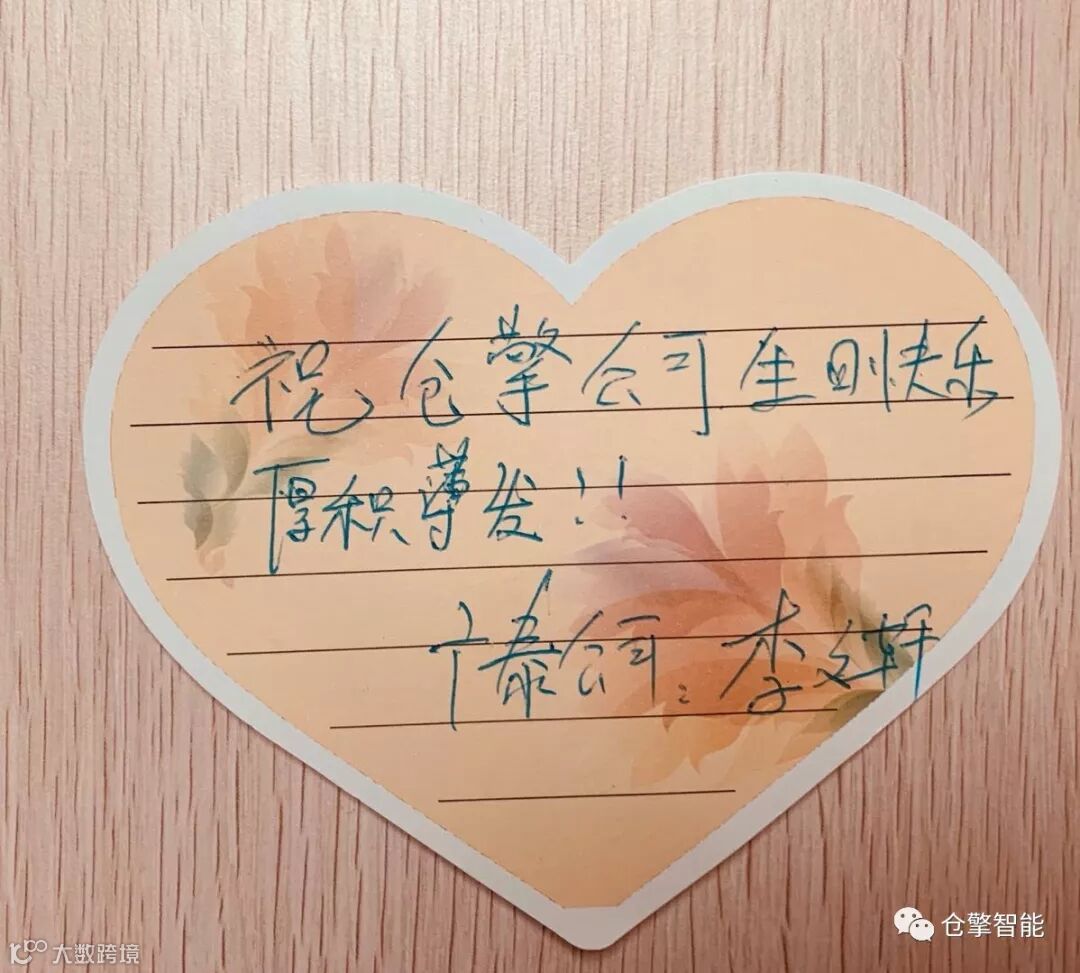 祝仓擎公司生日快乐
厚积薄发!!
泰公司:李文轩
仓擎智能
大数跨境